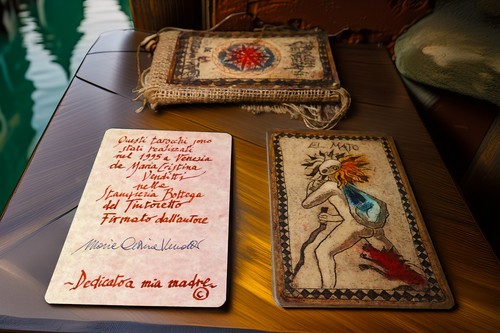 EL MATO
Questi tarocchi sono
stati realizzati
nel 1995 a Venezia
da Maria Cristina
Venditti
nella
Stamperia Bottega
del Tintoretto
Firmato dall'autore
~Dedicato a mia madre~
©